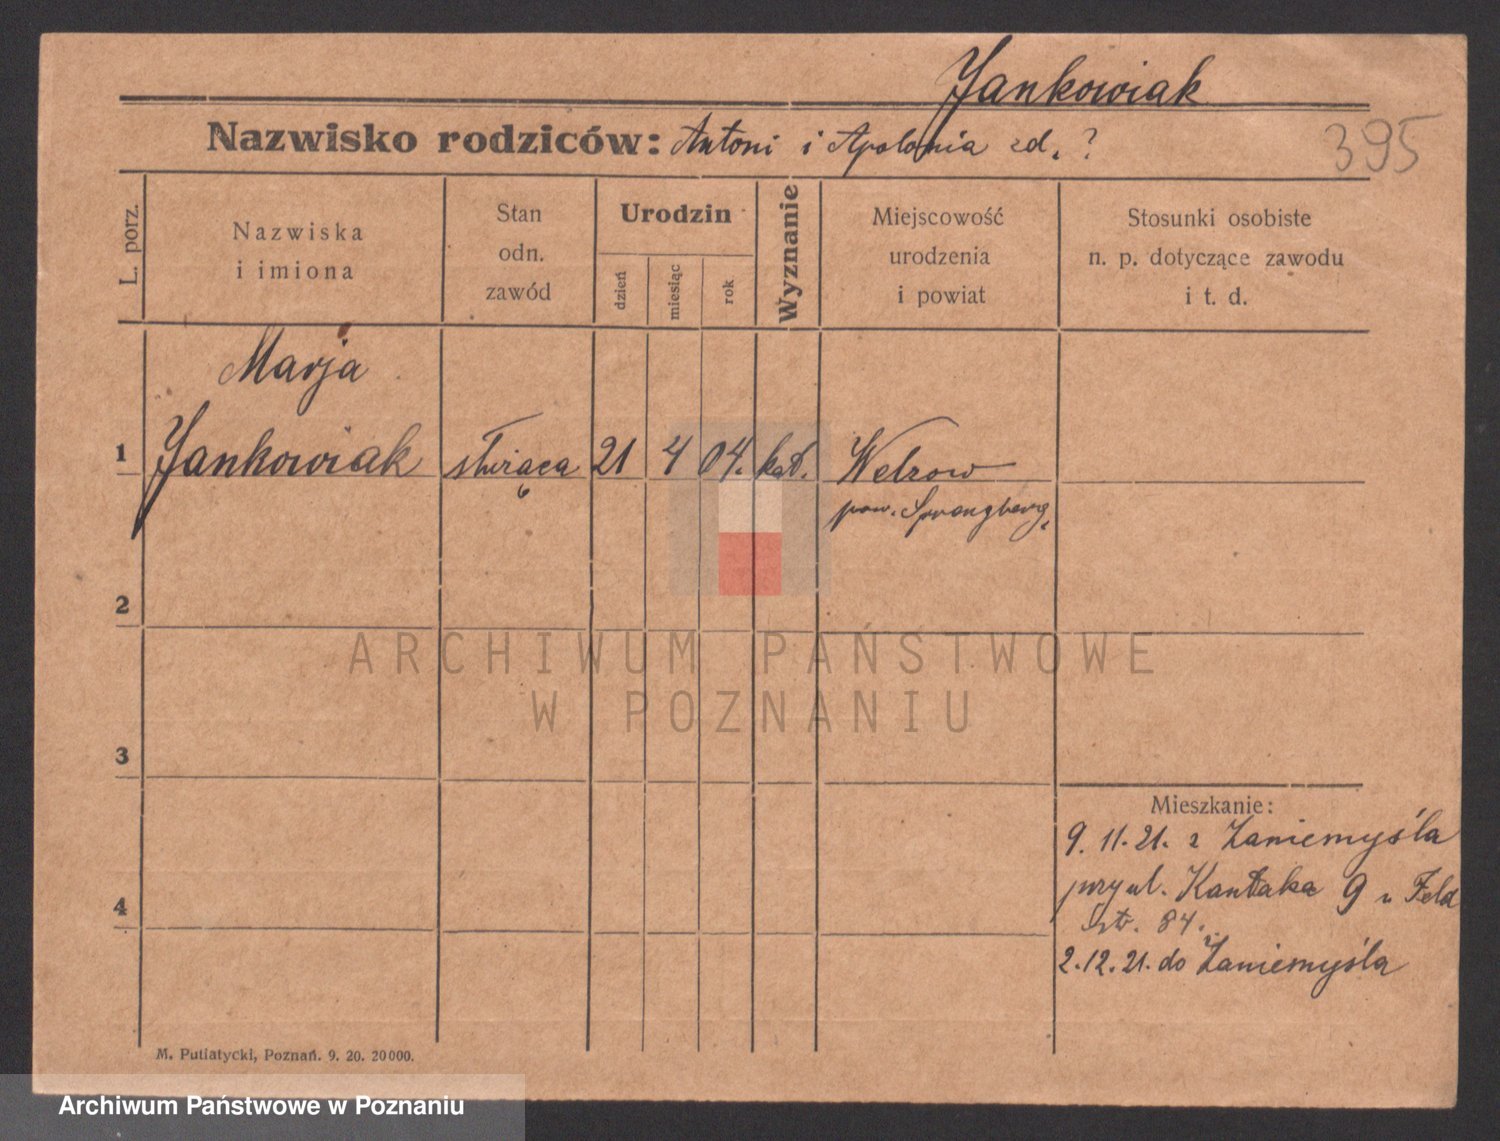 Jankowiak
Nazwisko rodziców: Antoni i Apolonia zd. ?
395
L. porz.
Nazwiska
i imiona
Stan
odn.
zawód
Urodzin
dzień
miesiąc
rok
Wyznanie
Miejscowość
urodzenia
i powiat
Stosunki osobiste
n. p. dotyczące zawodu
i t. d.
Marja
1 Jankowiak służąca 21 4 04. kat. Welzow
pow. Sprongberg
2
3
4
Mieszkanie:
9. 11. 21. z Zaniemyśla
przy ul. Kantaka 9 u Feld
str. 84.
2. 12. 21. do Zaniemyśla
M. Putiatycki, Poznań. 9. 20. 20000.
ARCHIWUM PAŃSTWOWE
W POZNANIU
Archiwum Państwowe w Poznaniu